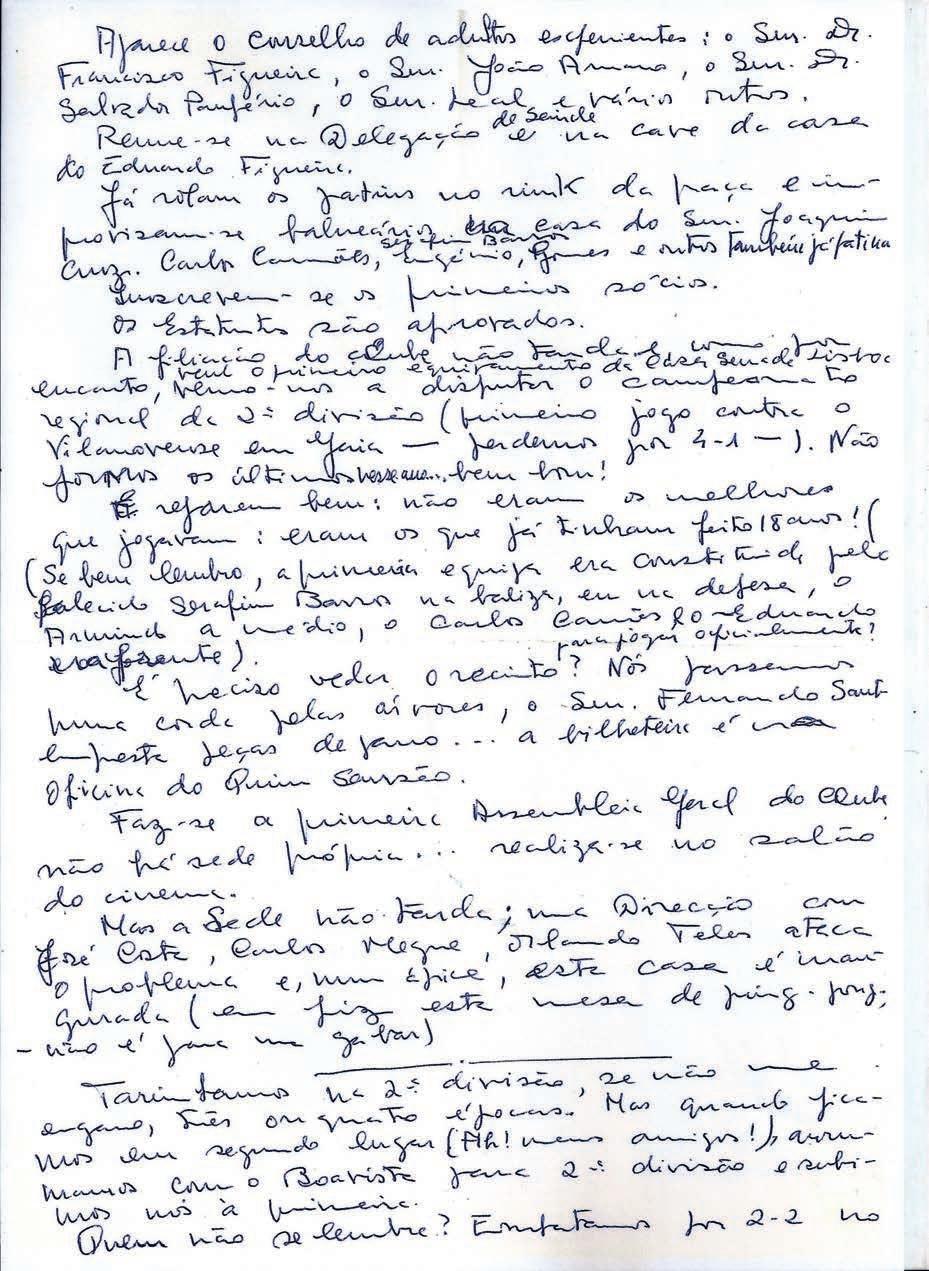 Aparece o conselho de adultos experientes: o Snr. Dr.
Francisco Figueira, o Snr. João Amaro, o Snr. Dr.
Salvador Panfério, o Snr. Leal e vários outros.
Reune-se na Delegação de Saúde e na cave da casa
do Eduardo Figueira.
Já rolam os patins no rink da praça e im-
provisam-se balneários na casa do Snr. Joaquim
Cruz. Carlos Camões, Serafim Barros, Eugénio, Gomes e outros também já patinam
Inscrevem-se os primeiros sócios.
Os Estatutos são aprovados.
A filiação do Clube não tarda e como por
vem o primeiro equipamento da Casa Sena de Lisboa
encanto, vêmo-nos a disputar o campeonato
regional da 2ª divisão (primeiro jogo contra o
Vilanovense em Gaia — perdemos por 4-1 —). Não
fomos os últimos nesse ano... bem bom!
E reparem bem: não eram os melhores
que jogavam: eram os que já tinham feito 18 anos! (
(Se bem lembro, a primeira equipa era constituída pelo
falecido Serafim Barros na baliza, eu na defesa, o
Armindo a médio, o Carlos Camões e o Eduardo
à frente).
É preciso vedar o recinto para jogar oficialmente? Nós passamos
uma corda pelas árvores, o Snr. Fernando Sant
empresta peças de pano... a bilheteira é na
Oficina do Quim Sansão.
Faz-se a primeira Assembleia Geral do Clube
não há sede própria... realiza-se no salão
do cinema.
Mas a Sede não tarda; uma Direcção com
José Costa, Carlos Megre, Orlando Teles ataca
o problema e, num ápice, esta casa é inau-
gurada (eu fiz esta mesa de ping-pong;
- não é para me gabar)
Tarimbamos na 2ª divisão, se não me
engano, três ou quatro épocas. Mas quando fica-
mos em segundo lugar (Ah! meus amigos!), arru-
mamos com o Boavista para 2ª divisão e subi-
mos nós à primeira.
Quem não se lembra? Empatamos por 2-2 no